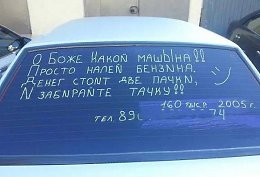 О Боже какой машЫна!!
Просто налей бензина,
Денег стоит две пачки,
И забирайте тачку!!
160 тыс.р. 2005г.
тел. 89с. 74